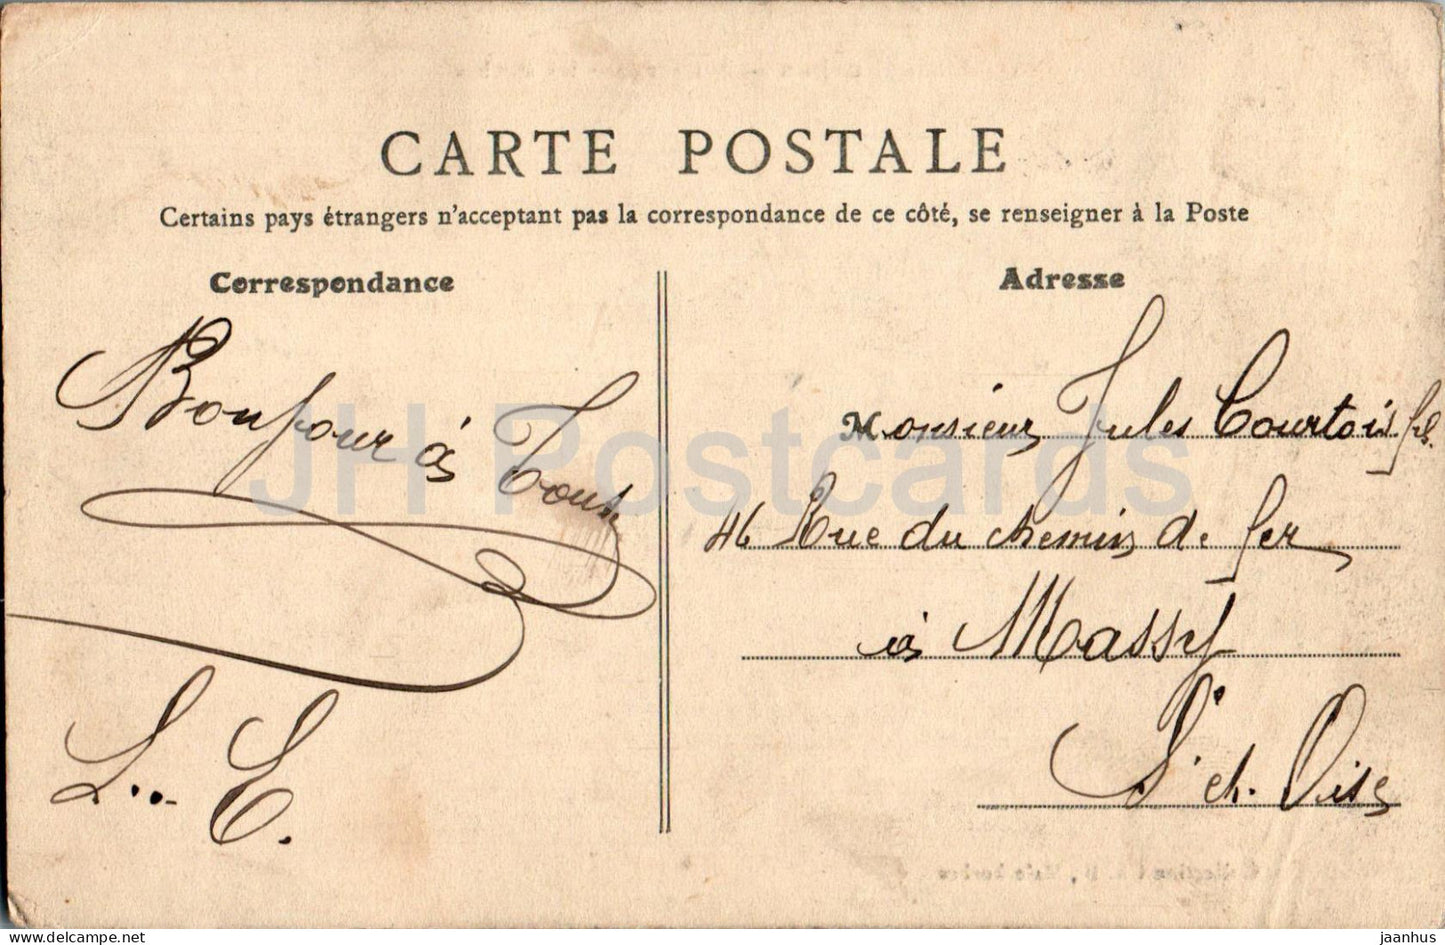 CARTE POSTALE
Certains pays étrangers n'acceptent pas la correspondance de ce côté, se renseigner à la Poste
Correspondance
Bonjour à Tous
L... E.
Adresse
Monsieur Jules Courtois fils
46 Rue du chemin de fer
à Massy
S. et. Oise
JH Postcards
www.delcampe.net
jaanhus